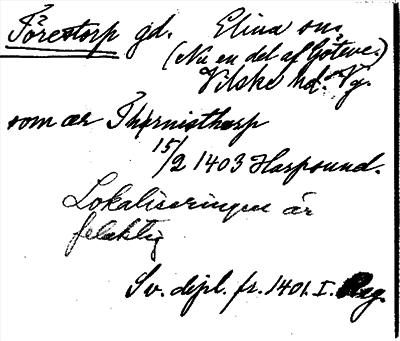 Törestorp gd. Elina sn.
(Nu en del af Göteve)
Vilske hd. Vg.
som ær Thyrnisthorp
15/2 1403 Harpsund.
Lokaliseringen är
felaktig
Sv. dipl. fr. 1401. I. Reg.